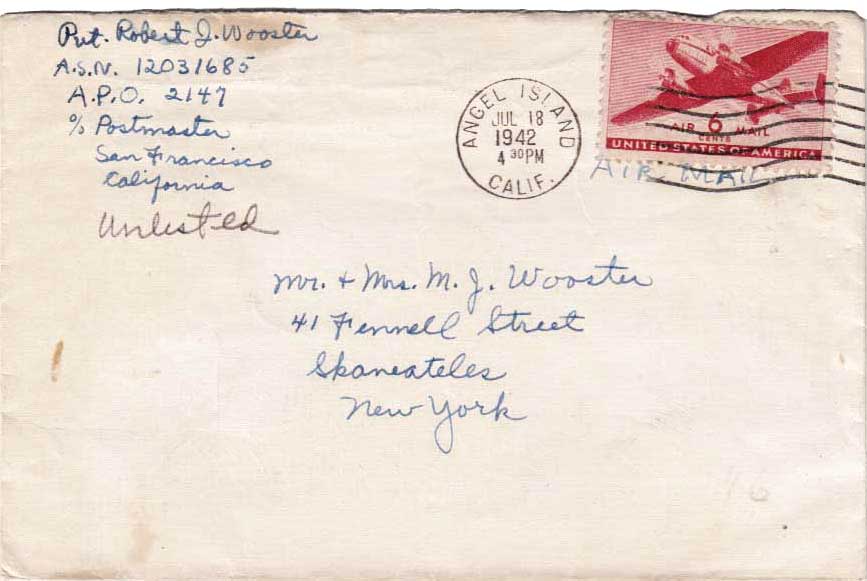 Pvt. Robert J. Wooster
A.S.N. 12031685
A.P.O. 2147
% Postmaster
San Francisco
California
Unlisted
ANGEL ISLAND
JUL 18
1942
4 30 PM
CALIF.
AIR 6 MAIL
CENTS
UNITED STATES OF AMERICA
AIR MAIL
Mr. + Mrs. M. J. Wooster
41 Fennell Street
Skaneateles
New York